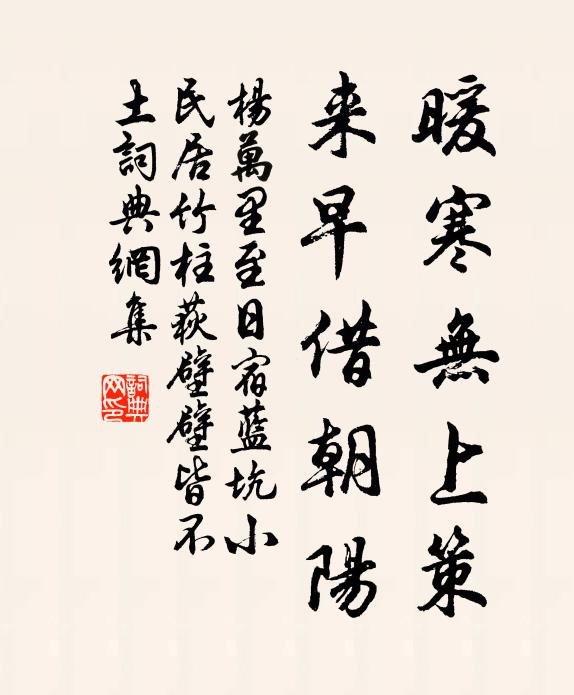 暖寒無上策
来早借朝陽
楊萬里至日宿藍坑小
民居竹柱荻壁壁皆不
土詞典網集
詞典網印